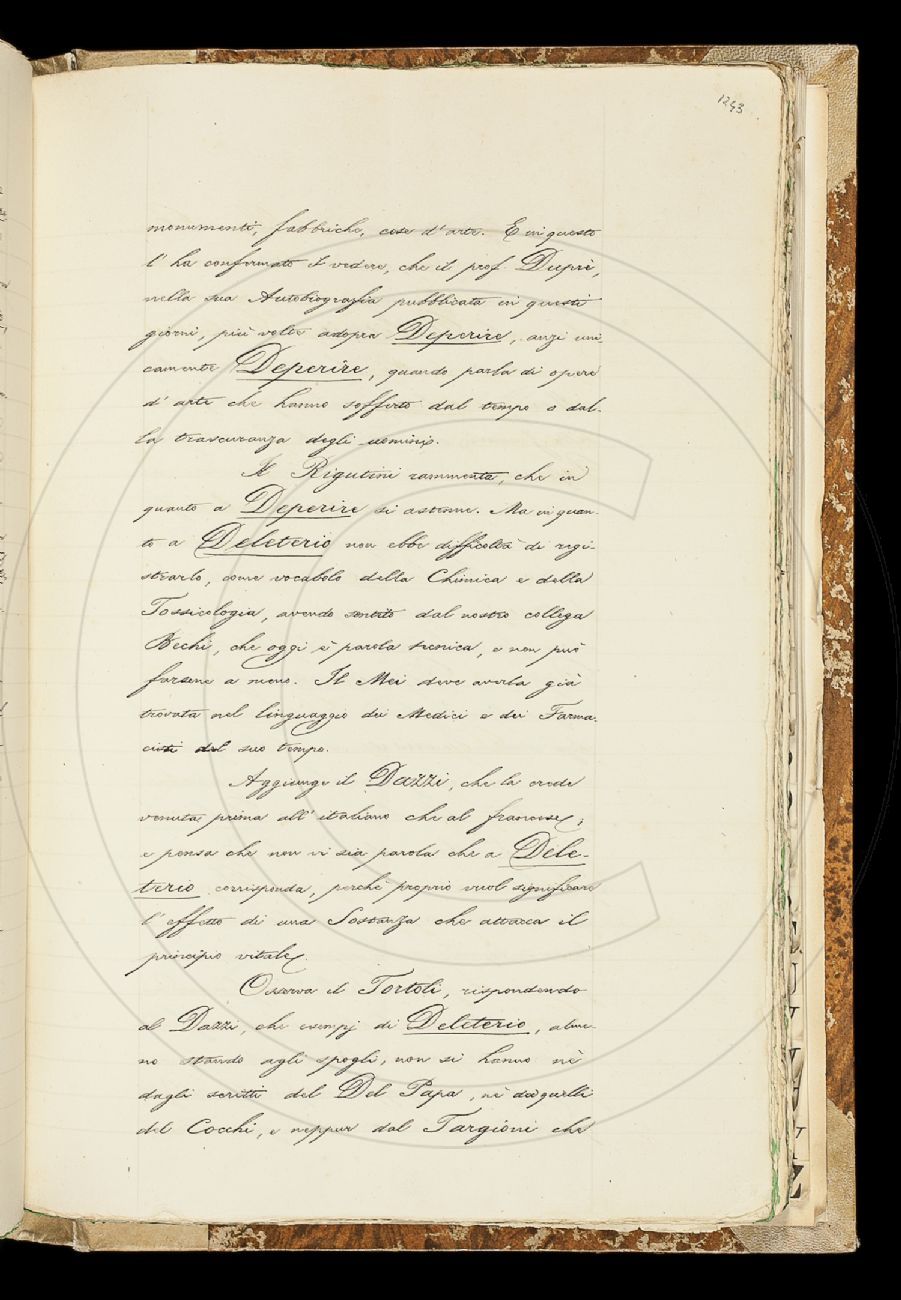 1243
monumenti, fabbriche, cose d'arte. E in questo
l'ha confermato il vedere, che il prof. Duprè,
nella sua Autobiografia pubblicata in questi
giorni, più volte adopra Deperire, anzi uni-
camente Deperire, quando parla di opere
d'arte che hanno sofferto dal tempo o dal-
la trascuranza degli uomini.
Il Rigutini rammenta, che in
quanto a Deperire si astenne. Ma in quan-
to a Deleterio non ebbe difficoltà di regi-
strarlo, come vocabolo della Chimica e della
Tossicologia, avendo sentito dal nostro collega
Bechi, che oggi è parola tecnica, e non può
farsene a meno. Il Mei deve averla già
trovata nel linguaggio dei Medici e dei Farma-
cisti del suo tempo.
Aggiunge il Dazzi, che la crede
venuta prima all'italiano che al francese;
e pensa che non vi sia parola che a Dele-
terio corrisponda, perchè proprio vuol significare
l'effetto di una Sostanza che attacca il
principio vitale.
Osserva il Tortoli, rispondendo
al Dazzi, che esempj di Deleterio, alme-
no stando agli spogli, non si hanno nè
dagli scritti del Del Papa, nè da quelli
del Cocchi, e neppur dal Targioni che